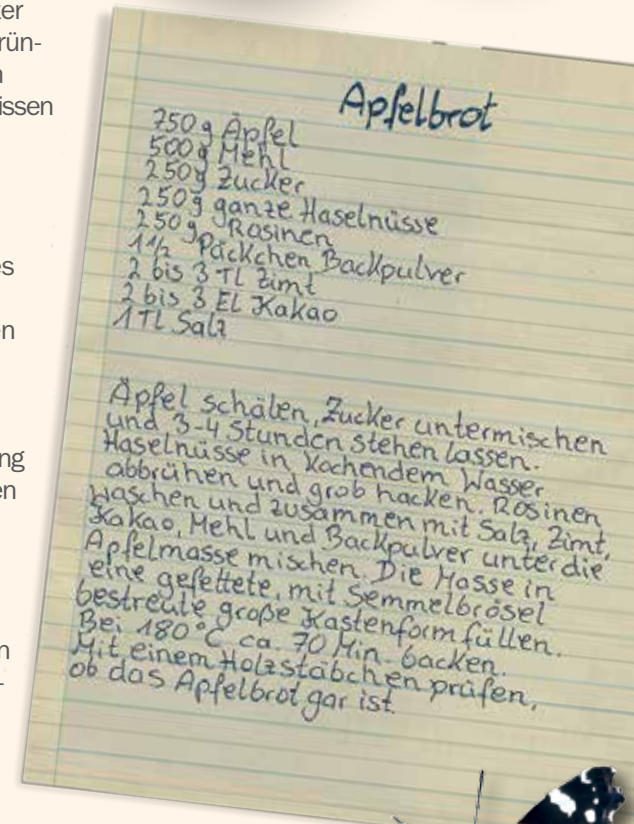 ker
rün-
n
issen
es
en
ng
en
n
-
Apfelbrot
750 g Äpfel
500 g Mehl
250 g Zucker
250 g ganze Haselnüsse
250 g Rosinen
1 1/2 Päckchen Backpulver
2 bis 3 TL Zimt
2 bis 3 EL Kakao
1 TL Salz
Äpfel schälen, Zucker untermischen
und 3-4 Stunden stehen lassen.
Haselnüsse in kochendem Wasser
abbrühen und grob hacken. Rosinen
waschen und zusammen mit Salz, Zimt,
Kakao, Mehl und Backpulver unter die
Apfelmasse mischen. Die Masse in
eine gefettete, mit Semmelbrösel
bestreute große Kastenform füllen.
Bei 180°C ca. 70 Min. backen.
Mit einem Holzstäbchen prüfen,
ob das Apfelbrot gar ist.